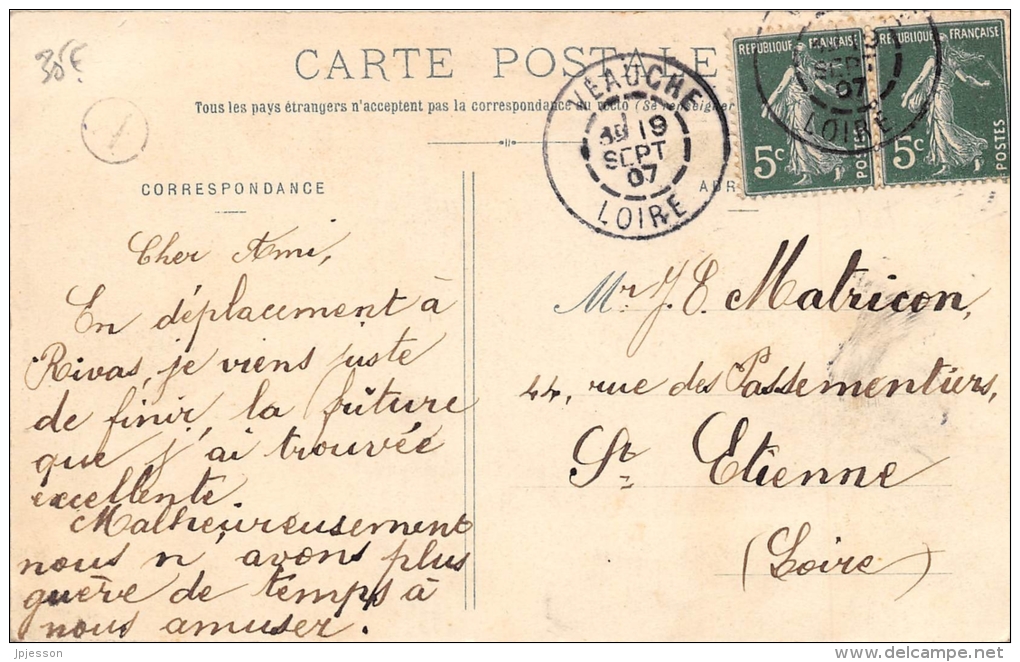 35F
CARTE POSTALE
Tous les pays étrangers n'acceptent pas la correspondance au recto (Se renseigner
CORRESPONDANCE
ADR
VEAUCHE
19
SEPT
07
LOIRE
REPUBLIQUE FRANÇAISE
5c
POSTES
REPUBLIQUE FRANÇAISE
5c
POSTES
SEPT
07
LOIRE
Cher Ami,
En déplacement à
Rivas, je viens juste
de finir, la friture
que j'ai trouvée
excellente.
Malheureusement
nous n'avons plus
guère de temps à
nous amuser.
Mr J. E. Matricon,
44, rue des Passementiers,
St Etienne
(Loire)
© jpjesson
www.delcampe.net